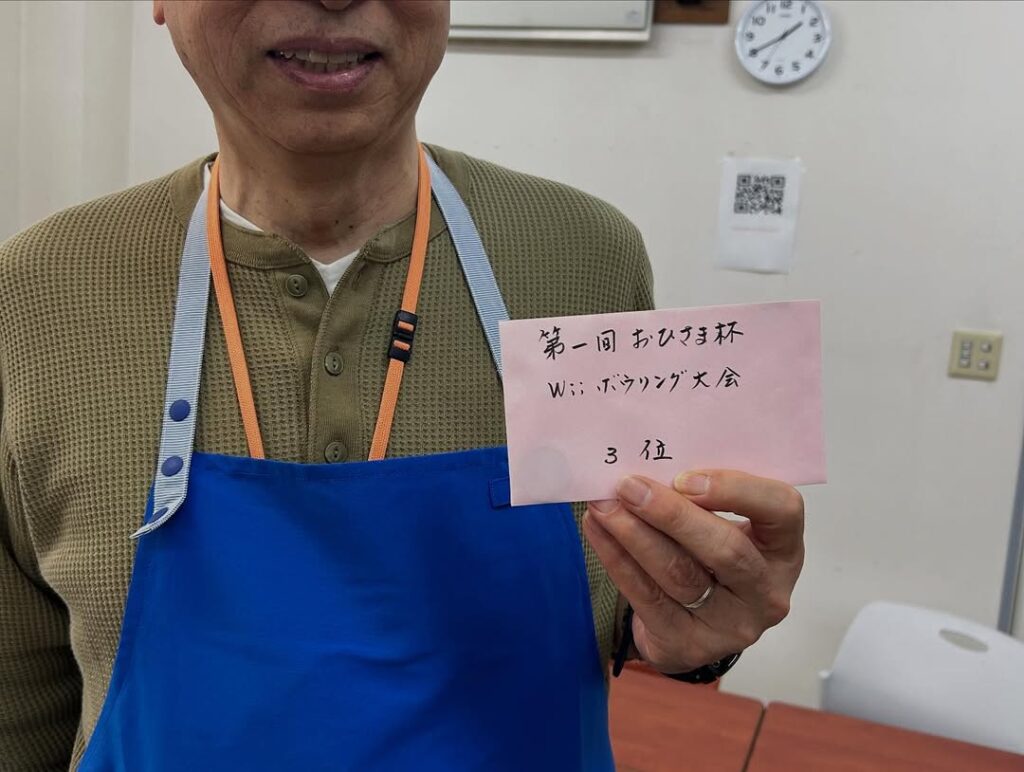 第一回 おひさま杯
Wii ボウリング大会
3位